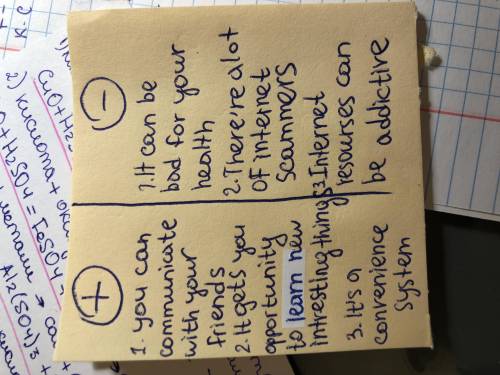 +
1. you can
communicate
with your
friends
2. It gets you
opportunity
to learn new
intresting things
3. It's a
convenience
system
-
1. It can be
bad for your
health
2. There're a lot
of internet
scammers
3. Internet
resourses can
be addictive
CuO+H₂
2) кислота + окси
+H₂SO₄ = FeSO₄
Al₂(SO₄)₃ +